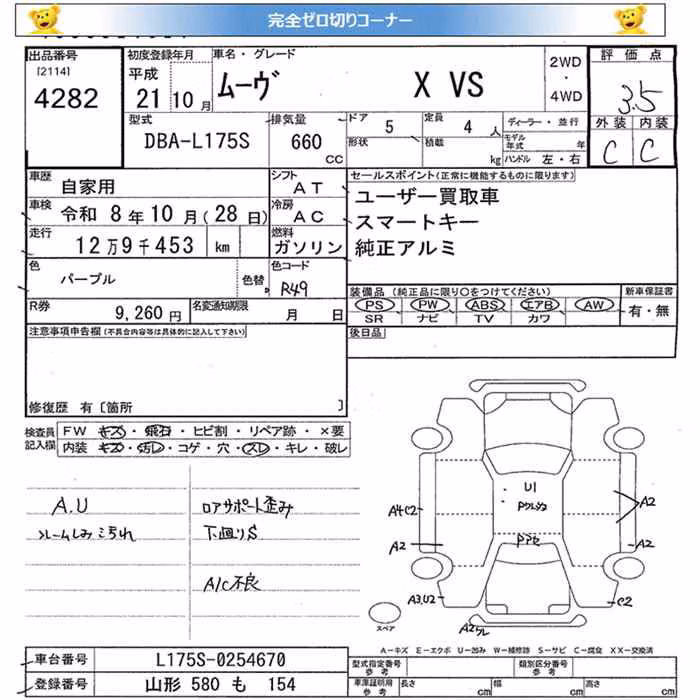 完全ゼロ切りコーナー
出品番号
[2114]
4282
初度登録年月
平成
21年10月
車名・グレード
ムーヴ X VS
2WD
・
4WD
評価点
3.5
外装 内装
C C
型式
DBA-L175S
排気量
660
CC
ドア 5
形状
定員 4 人
積載 kg
ディーラー・並行
モデル年式 年
ハンドル 左・右
車歴
自家用
シフト
AT
車検 令和 8年10月(28日)
冷房
AC
走行
12万9千453 km
燃料
ガソリン
色
パープル
色替
色コード
R49
R券
9,260円
名変通知期限
月 日
セールスポイント(正常に機能するものに限ります)
ユーザー買取車
スマートキー
純正アルミ
装備品(純正品に限り○をつけてください)
PS PW ABS エアB AW
SR ナビ TV カワ
新車保証書
有・無
後日品
注意事項申告欄(不具合内容等は具体的に記入して下さい)
修復歴 有〔箇所 〕
検査員記入欄
FW キズ・飛石・ヒビ割・リペア跡・×要
内装 キズ・汚レ・コゲ・穴・スレ・キレ・破レ
A.U
フレームしみ汚れ
ロアサポート歪み
下廻りS
A/C不良
U1
Pクリツヤ
Pアセ
A4C2
A2
A2
A2
A3,U2
C2
A2ワレ
スペア
A-キズ E-エクボ U-凹み W-補修跡 S-サビ C-腐食 XX-交換済
車台番号
L175S-0254670
登録番号
山形 580 も 154
型式指定番号
参考
類別区分番号
参考
車庫証明用
参考
長さ cm
幅 cm
高さ cm